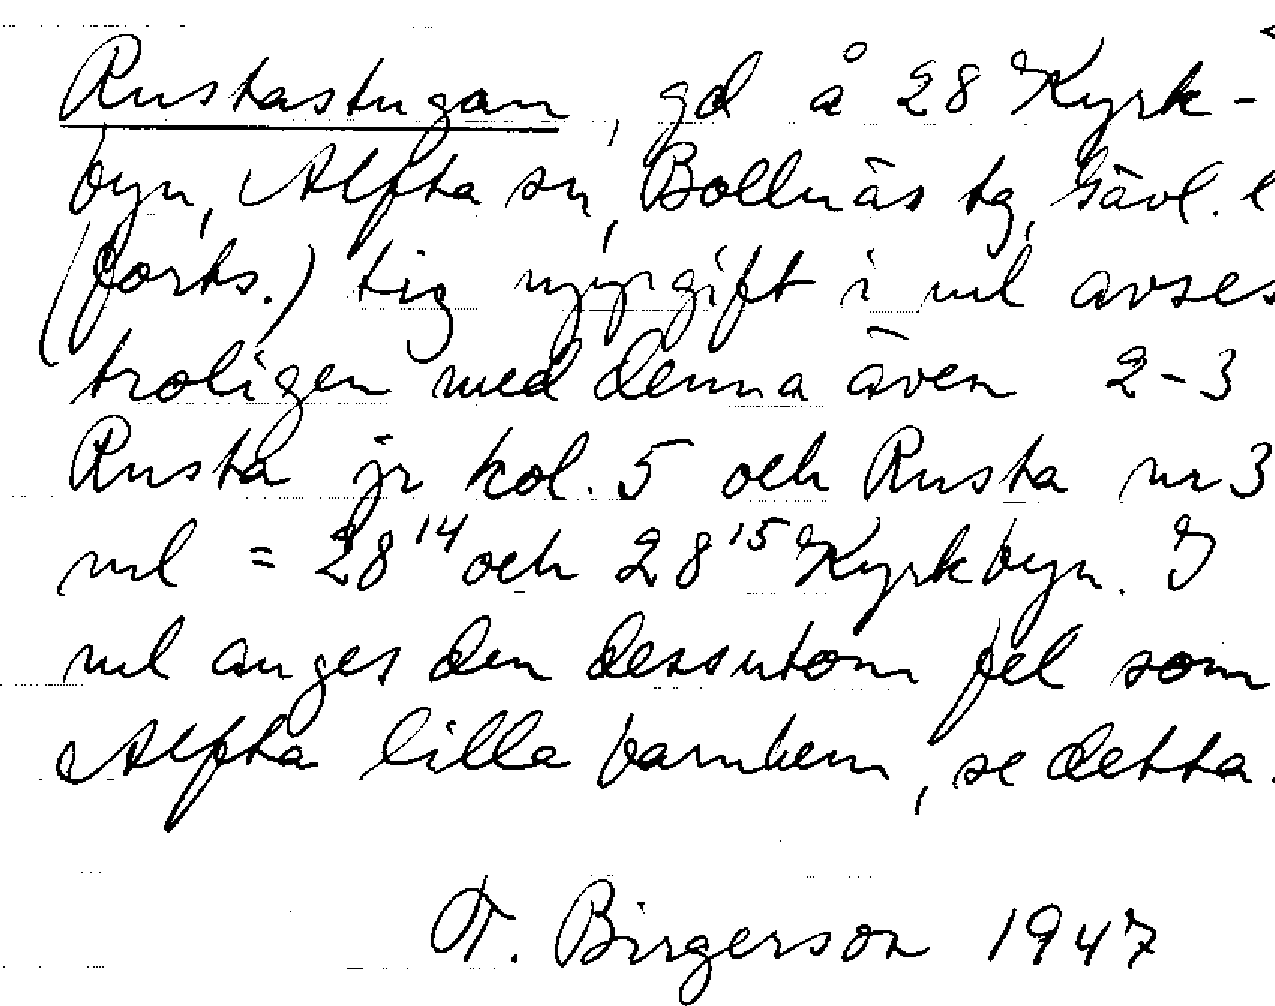 Rustastugan, gd å 28 Kyrk-
byn, Alfta sn, Bollnäs tg, Gävl. l
(forts.) tig uppgift i ml avses
troligen med denna även 2-3
Rusta jr kol. 5 och Rusta nr 3
ml = 28¹⁴ och 28¹⁵ Kyrkbyn. I
ml anges den dessutom fel som
Alfta lilla barnhem, se detta.
F. Birgerson 1947